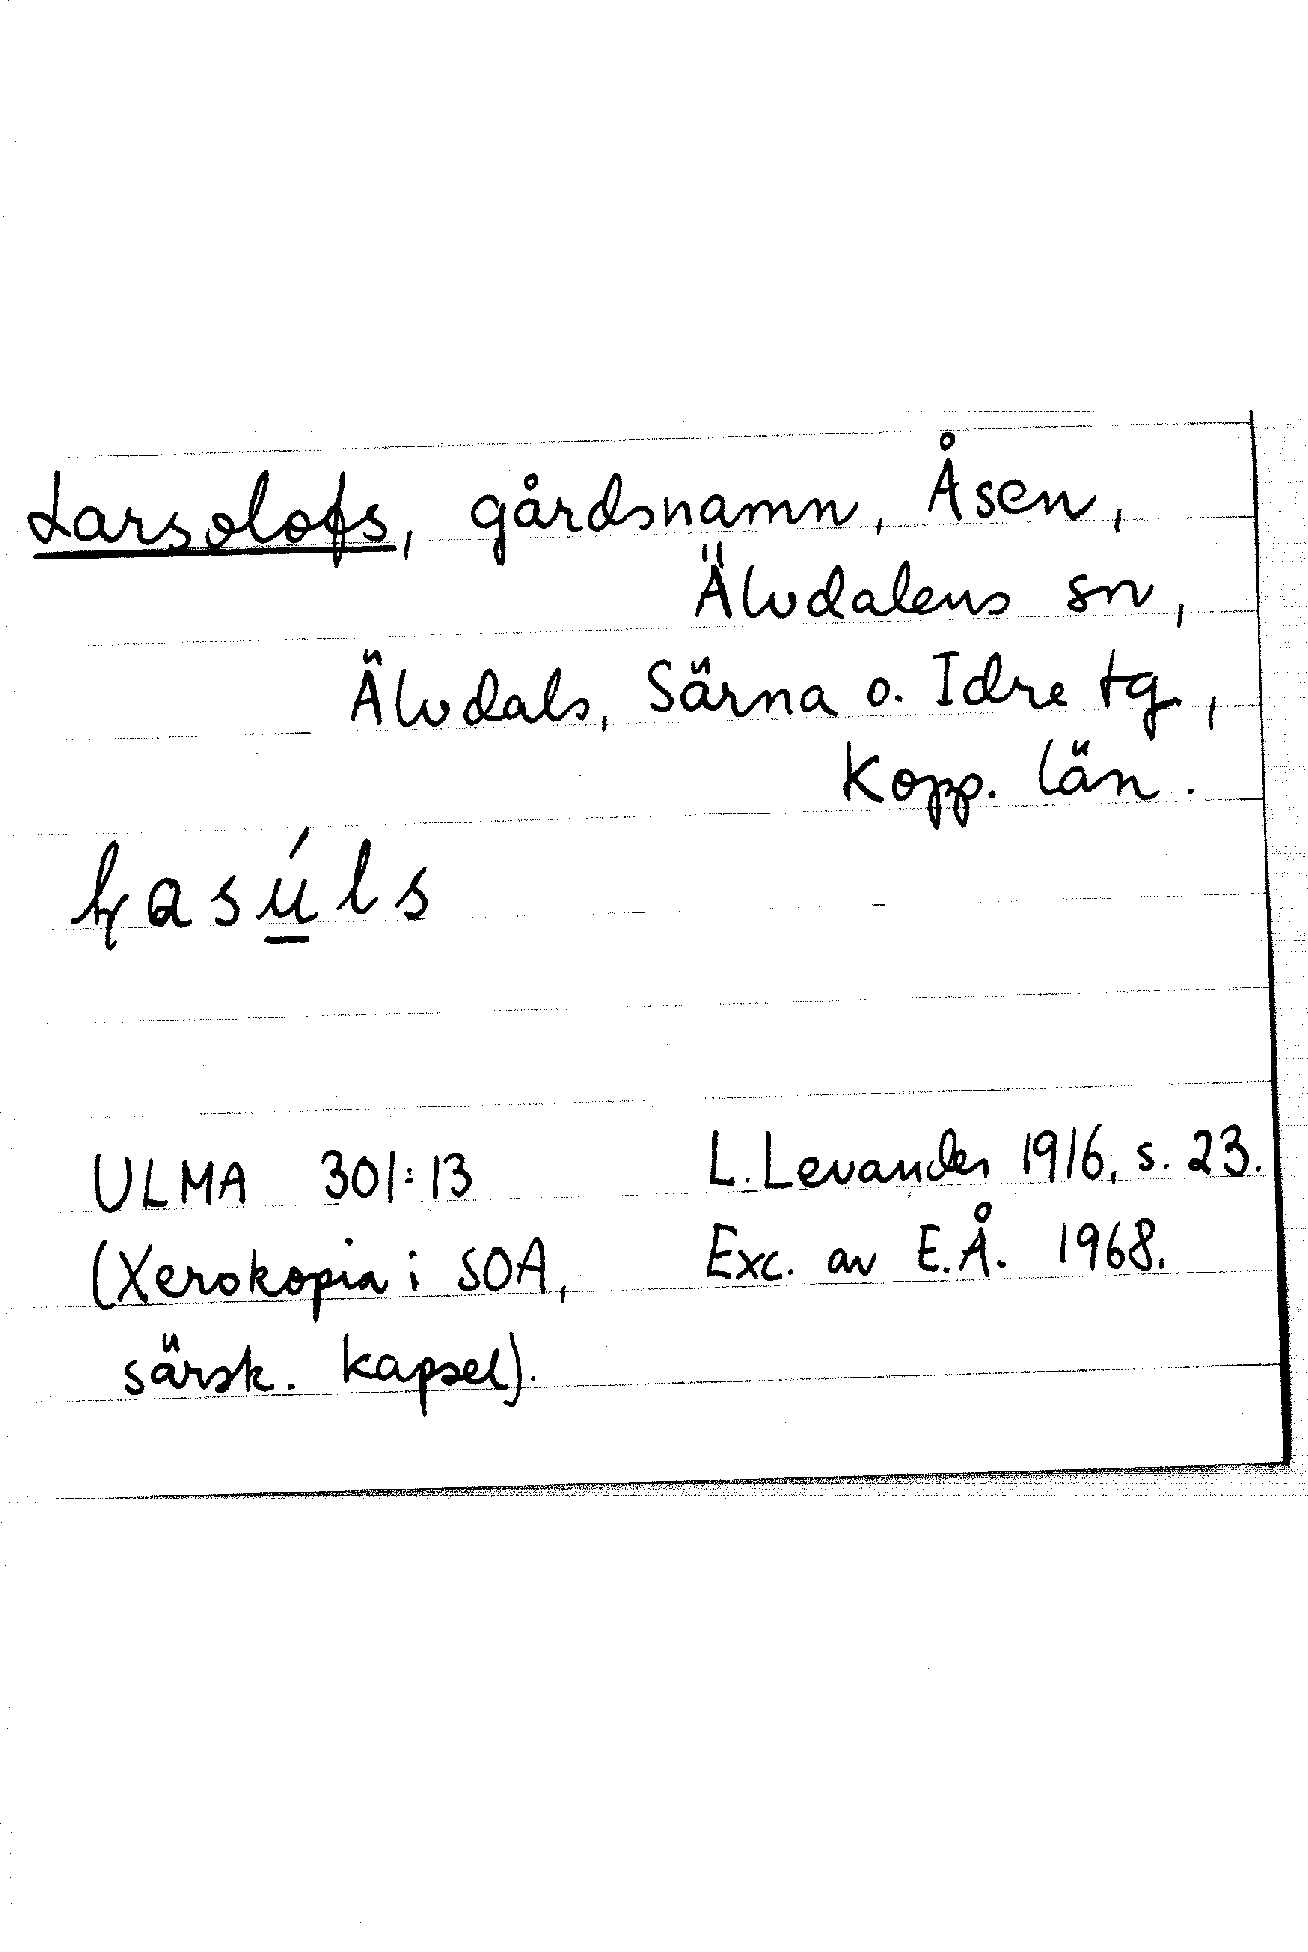 Larsolofs, gårdsnamn, Åsen,
Älvdalens sn,
Älvdals, Särna o. Idre tg.,
Kopp. län.
ULMA 301:13
(Xerokopia i SOA,
särsk. kapsel).
L. Levander 1916, s. 23.
Exc. av E.Å. 1968.